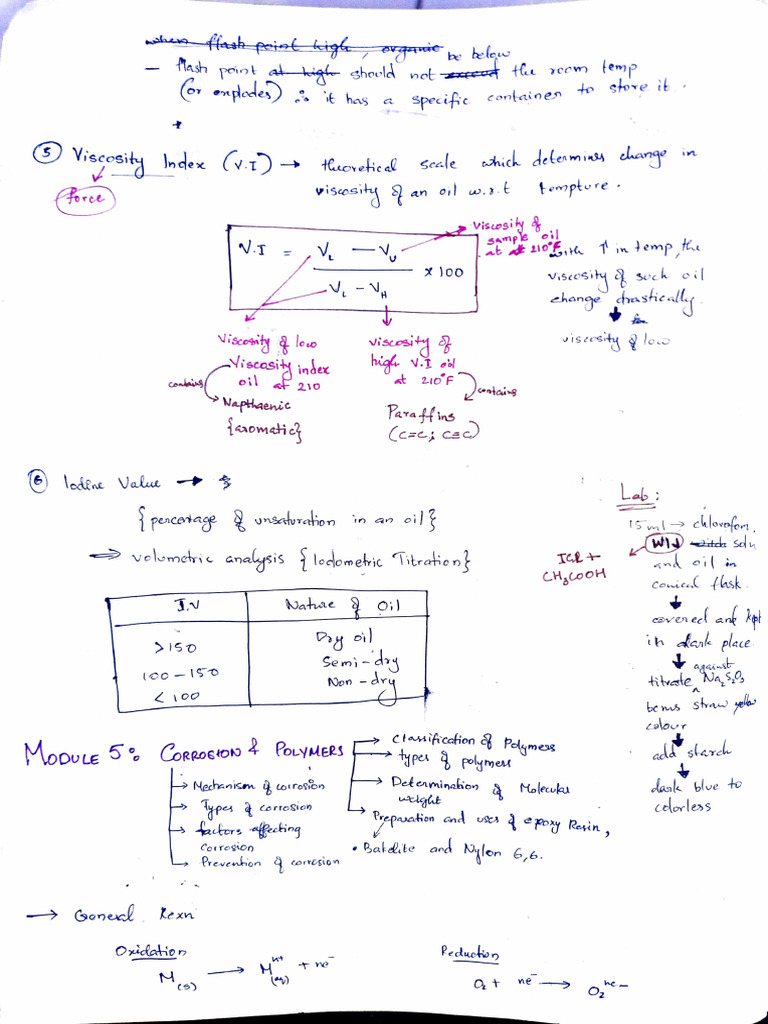 when flash point high, organic be below
– flash point at high should not exceed the room temp
(or explodes) ∴ it has a specific container to store it.
⑤ Viscosity Index (V.I) → theoretical scale which determines change in
force
viscosity of an oil w.r.t tempture.
V.I = V_L — V_U / V_L – V_H × 100
Viscosity of
sample oil
at 210°F
with ↑ in temp, the
viscosity of such oil
change drastically.
viscosity of low
Viscosity of low
Viscosity index
oil at 210
contains
Napthaenic
{aromatic}
viscosity of
high V.I oil
at 210°F
contains
Paraffins
(C=C; C≡C)
⑥ Iodine Value →
{percentage of unsaturation in an oil}
⇒ volumetric analysis {Iodometric Titration}
I.V | Nature of Oil
>150 | Dry oil
100 – 150 | Semi-dry
< 100 | Non-dry
Lab:
15ml → chloroform,
WIJ soln
and oil in
conical flask.
CH₃COOH
covered and kept
in dark place
against
titrate Na₂S₂O₃
straw yellow
colour
add starch
dark blue to
colorless
MODULE 5: CORROSION & POLYMERS
→ Mechanism of corrosion
→ Types of corrosion
→ factors affecting
corrosion
→ Prevention of corrosion
→ Classification of Polymers
→ types of polymers
→ Determination of Molecular
weight
→ Preparation and uses of epoxy Resin,
• Bakelite and Nylon 6,6.
→ General Rexn
Oxidation
M(s) → Mⁿ⁺(aq) + ne⁻
Reduction
O₂ + ne⁻ → O₂ⁿᵉ⁻